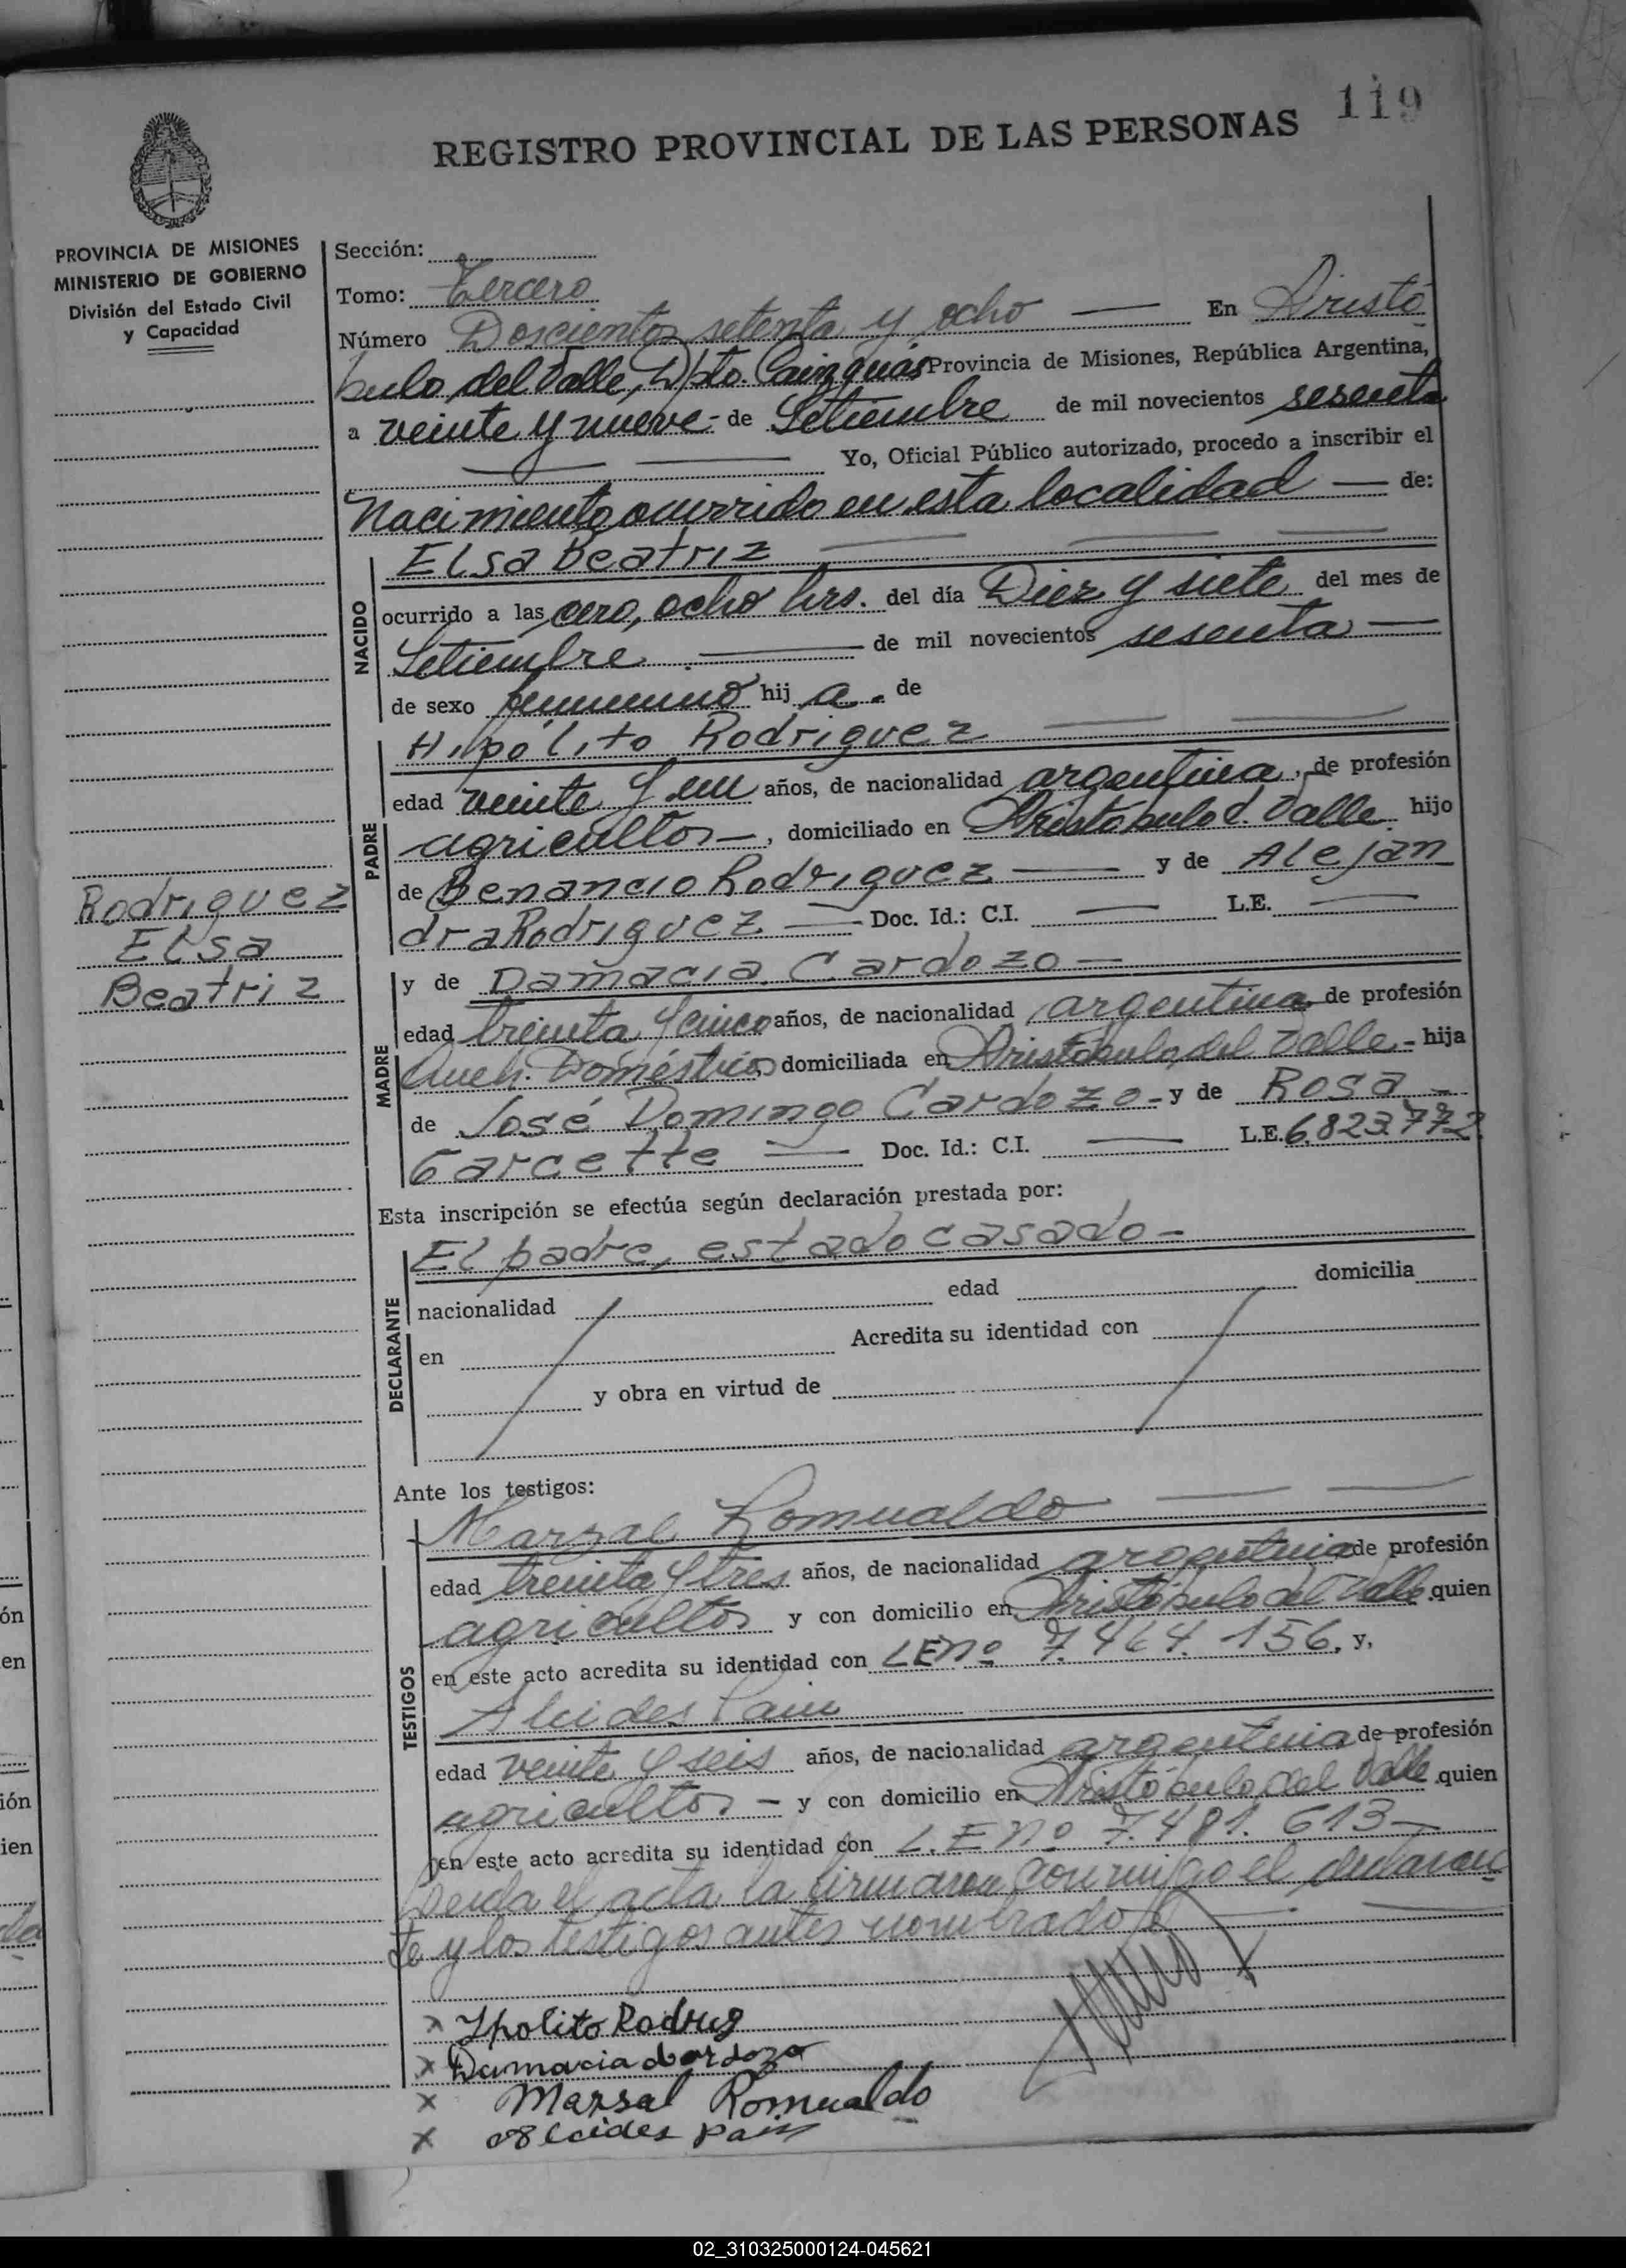 119
REGISTRO PROVINCIAL DE LAS PERSONAS
PROVINCIA DE MISIONES
MINISTERIO DE GOBIERNO
División del Estado Civil
y Capacidad
Sección:
Tomo: Tercero
Número Doscientos setenta y ocho — En Aristó
bulo del Valle, Dpto. Cainguás Provincia de Misiones, República Argentina,
a veinte y nueve - de Setiembre de mil novecientos sesenta
— — Yo, Oficial Público autorizado, procedo a inscribir el
Nacimiento ocurrido en esta localidad — de:
NACIDO
Elsa Beatriz — — —
ocurrido a las cero, ocho hrs. del día Diez y siete del mes de
Setiembre — de mil novecientos sesenta —
de sexo femenino hij a. de
PADRE
Hipólito Rodriguez — —
edad veinte y un años, de nacionalidad argentina, de profesión
agricultor —, domiciliado en Aristóbulo d. Valle hijo
de Benancio Rodriguez — y de Alejan
dra Rodriguez — Doc. Id.: C.I. — L.E. —
Rodriguez
Elsa
Beatriz
MADRE
y de Damacia Cardozo —
edad treinta y cinco años, de nacionalidad argentina de profesión
Queh. Domésticos, domiciliada en Aristóbulo del Valle - hija
de José Domingo Cardozo - y de Rosa -
Garcette — Doc. Id.: C.I. — L.E. 6.823.772
Esta inscripción se efectúa según declaración prestada por:
DECLARANTE
El padre, estado casado -
nacionalidad edad domicilia
en Acredita su identidad con
y obra en virtud de
Ante los testigos:
TESTIGOS
Marsal Romualdo — —
edad treinta y tres años, de nacionalidad argentina de profesión
agricultor y con domicilio en Aristóbulo del Valle quien
en este acto acredita su identidad con LE nº 7.464.156. y,
Alcides Pain
edad veinte y seis años, de nacionalidad argentina de profesión
agricultor - y con domicilio en Aristóbulo del Valle quien
en este acto acredita su identidad con L.E nº 7.481.613 —
Leída el acta la firmaron conmigo el declaran
te y los testigos antes nombrados — —
x Ipolito Rodrug
x Damacia Cardozo
x Marsal Romualdo
x alcides pain
02_310325000124-045621